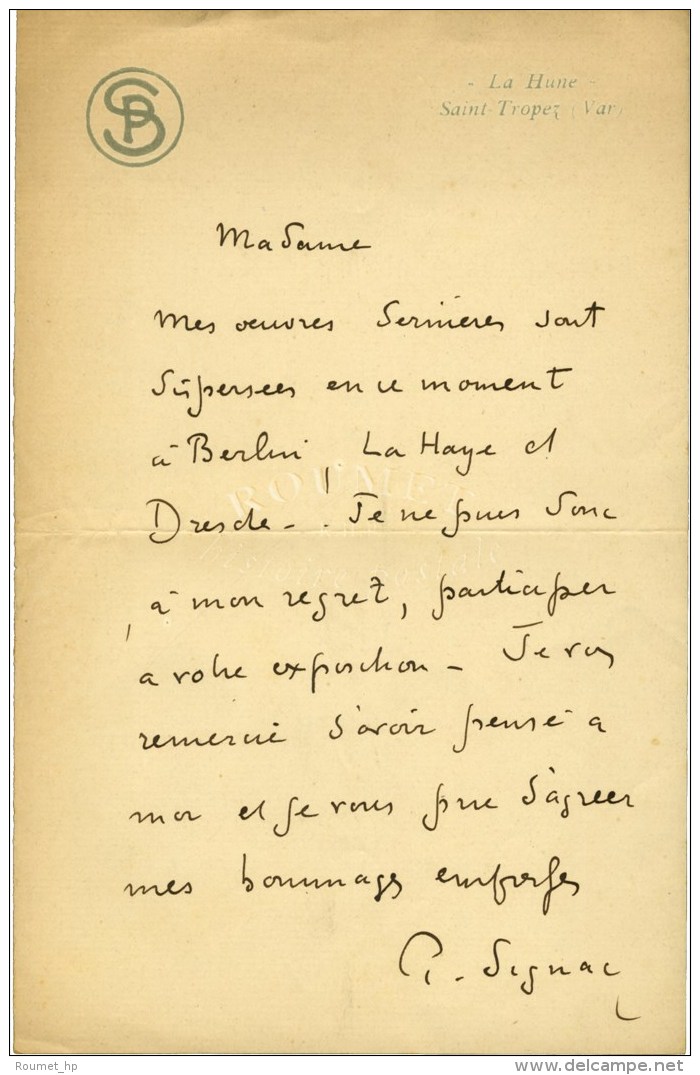 SPB
- La Hune -
Saint-Tropez (Var)
Madame
Mes oeuvres dernières sont
dispersées en ce moment
à Berlin, La Haye et
Dresde - ! Je ne puis donc
, à mon regret, participer
a votre exposition - Je vous
remercie d'avoir pensé a
moi et je vous prie d'agreer
mes hommages empressés
P. Signac
ROUMET
histoire postale
Roumet_hp
delcampe.net